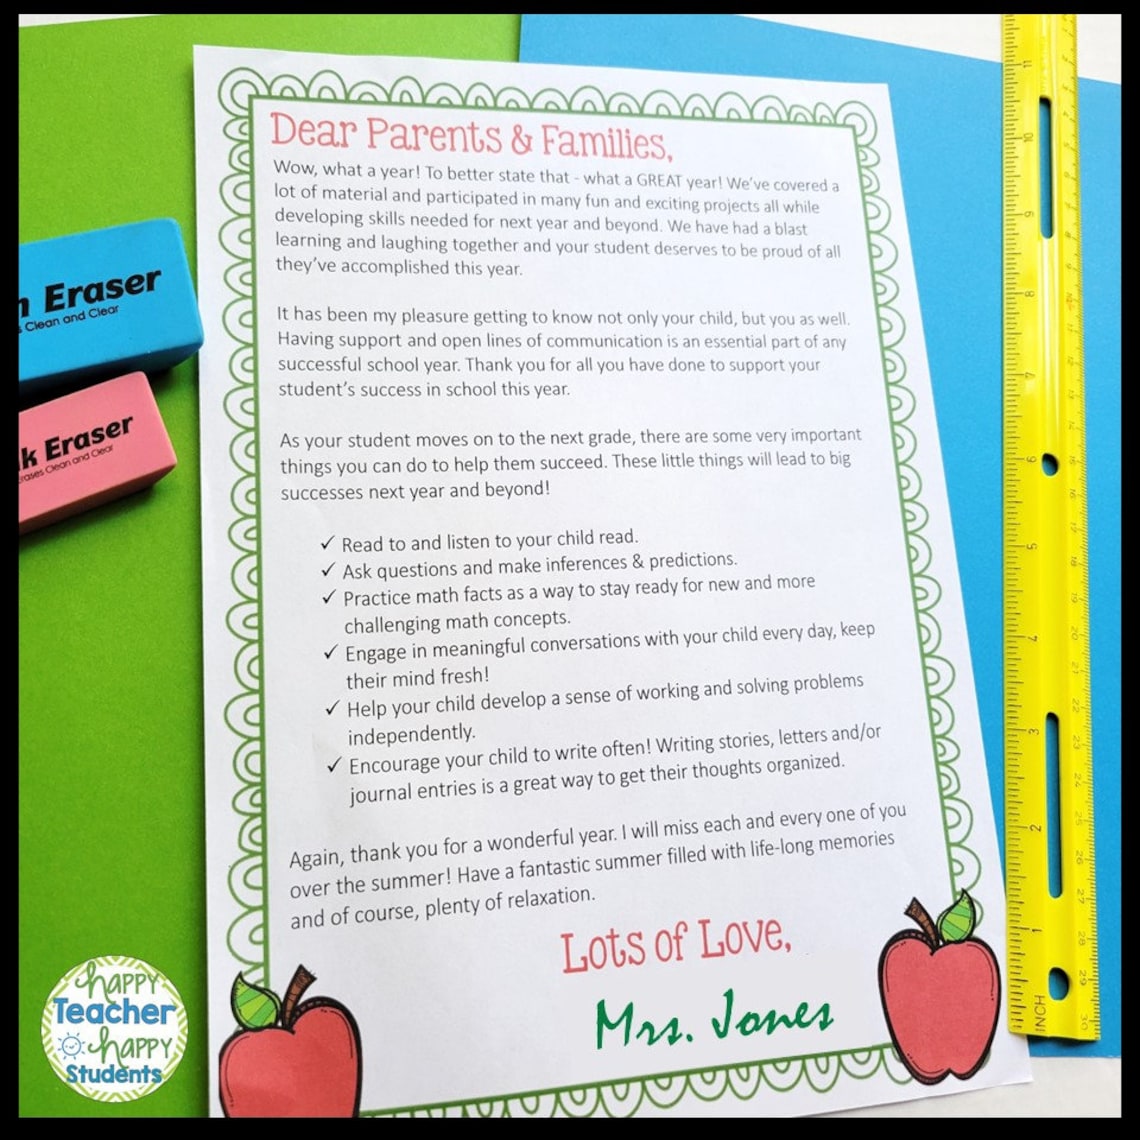 Dear Parents & Families,
Wow, what a year! To better state that - what a GREAT year! We've covered a
lot of material and participated in many fun and exciting projects all while
developing skills needed for next year and beyond. We have had a blast
learning and laughing together and your student deserves to be proud of all
they've accomplished this year.
It has been my pleasure getting to know not only your child, but you as well.
Having support and open lines of communication is an essential part of any
successful school year. Thank you for all you have done to support your
student's success in school this year.
As your student moves on to the next grade, there are some very important
things you can do to help them succeed. These little things will lead to big
successes next year and beyond!
✓ Read to and listen to your child read.
✓ Ask questions and make inferences & predictions.
✓ Practice math facts as a way to stay ready for new and more
challenging math concepts.
✓ Engage in meaningful conversations with your child every day, keep
their mind fresh!
✓ Help your child develop a sense of working and solving problems
independently.
✓ Encourage your child to write often! Writing stories, letters and/or
journal entries is a great way to get their thoughts organized.
Again, thank you for a wonderful year. I will miss each and every one of you
over the summer! Have a fantastic summer filled with life-long memories
and of course, plenty of relaxation.
Lots of Love,
Mrs. Jones
Eraser
Clean and Clear
Eraser
Clean and Clear
happy
Teacher
happy
Students
11
10
9
8
7
6
5
4
3
2
1
INCH